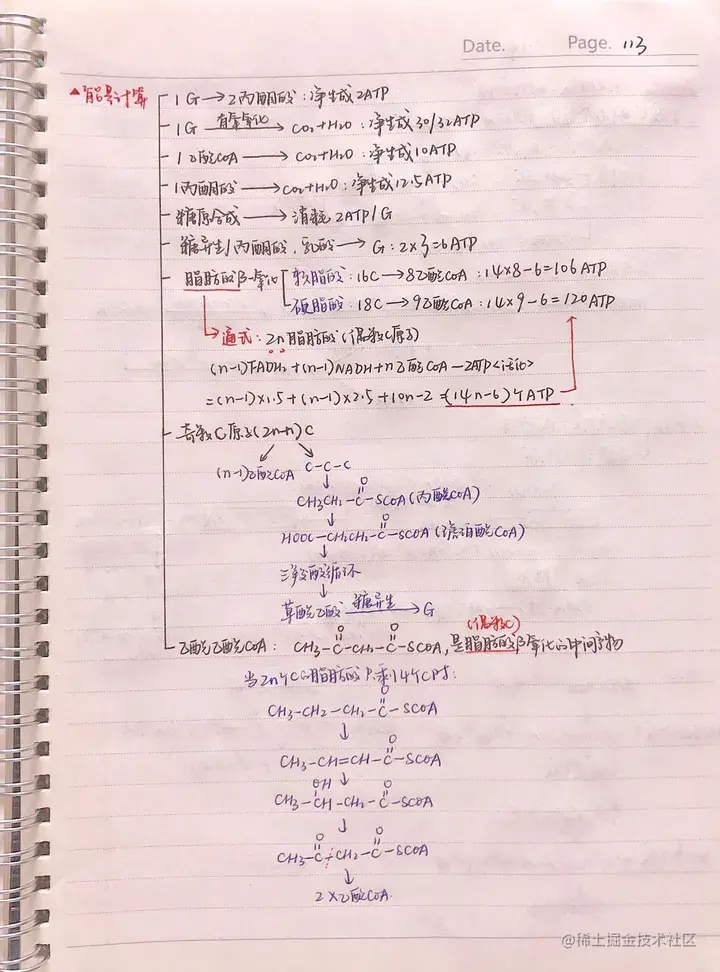 Date. Page. 113
▲能量计算
1G→2丙酮酸：净生成2ATP
1G 有氧氧化→ CO₂+H₂O：净生成30/32ATP
1乙酰COA → CO₂+H₂O：净生成10ATP
1丙酮酸 → CO₂+H₂O：净生成12.5ATP
糖原合成 → 消耗2ATP/G
糖异生/丙酮酸、乳酸 → G：2×3=6ATP
脂肪酸β-氧化
软脂酸：16C→8乙酰COA：14×8-6=106ATP
硬脂酸：18C→9乙酰COA：14×9-6=120ATP
→通式：2n脂肪酸(偶数C原子)
(n-1)FADH₂+(n-1)NADH+n乙酰COA-2ATP<活化>
=(n-1)×1.5+(n-1)×2.5+10n-2=(14n-6)个ATP
奇数C原子(2n+1)C
(n-1)乙酰COA C-C-C
↓ O
CH₃CH₂-C-SCOA(丙酰COA)
↓ O
HOOC-CH₂CH₂-C-SCOA(琥珀酰COA)
↓
三羧酸循环
↓
草酰乙酸 糖异生→G
(偶数C)
O O
乙酰乙酰COA：CH₃-C-CH₂-C-SCOA，是脂肪酸β氧化的中间产物
当2n个C的脂肪酸只剩4个C时：
O
CH₃-CH₂-CH₂-C-SCOA
↓
O
CH₃-CH=CH-C-SCOA
OH ↓ O
CH₃-CH-CH₂-C-SCOA
↓
O O
CH₃-C-CH₂-C-SCOA
↓
2×乙酰COA.
@稀土掘金技术社区